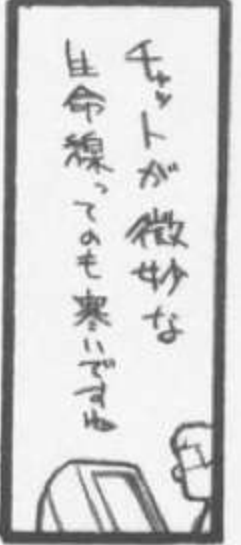 チャットが微妙な
生命線ってのも寒いですね